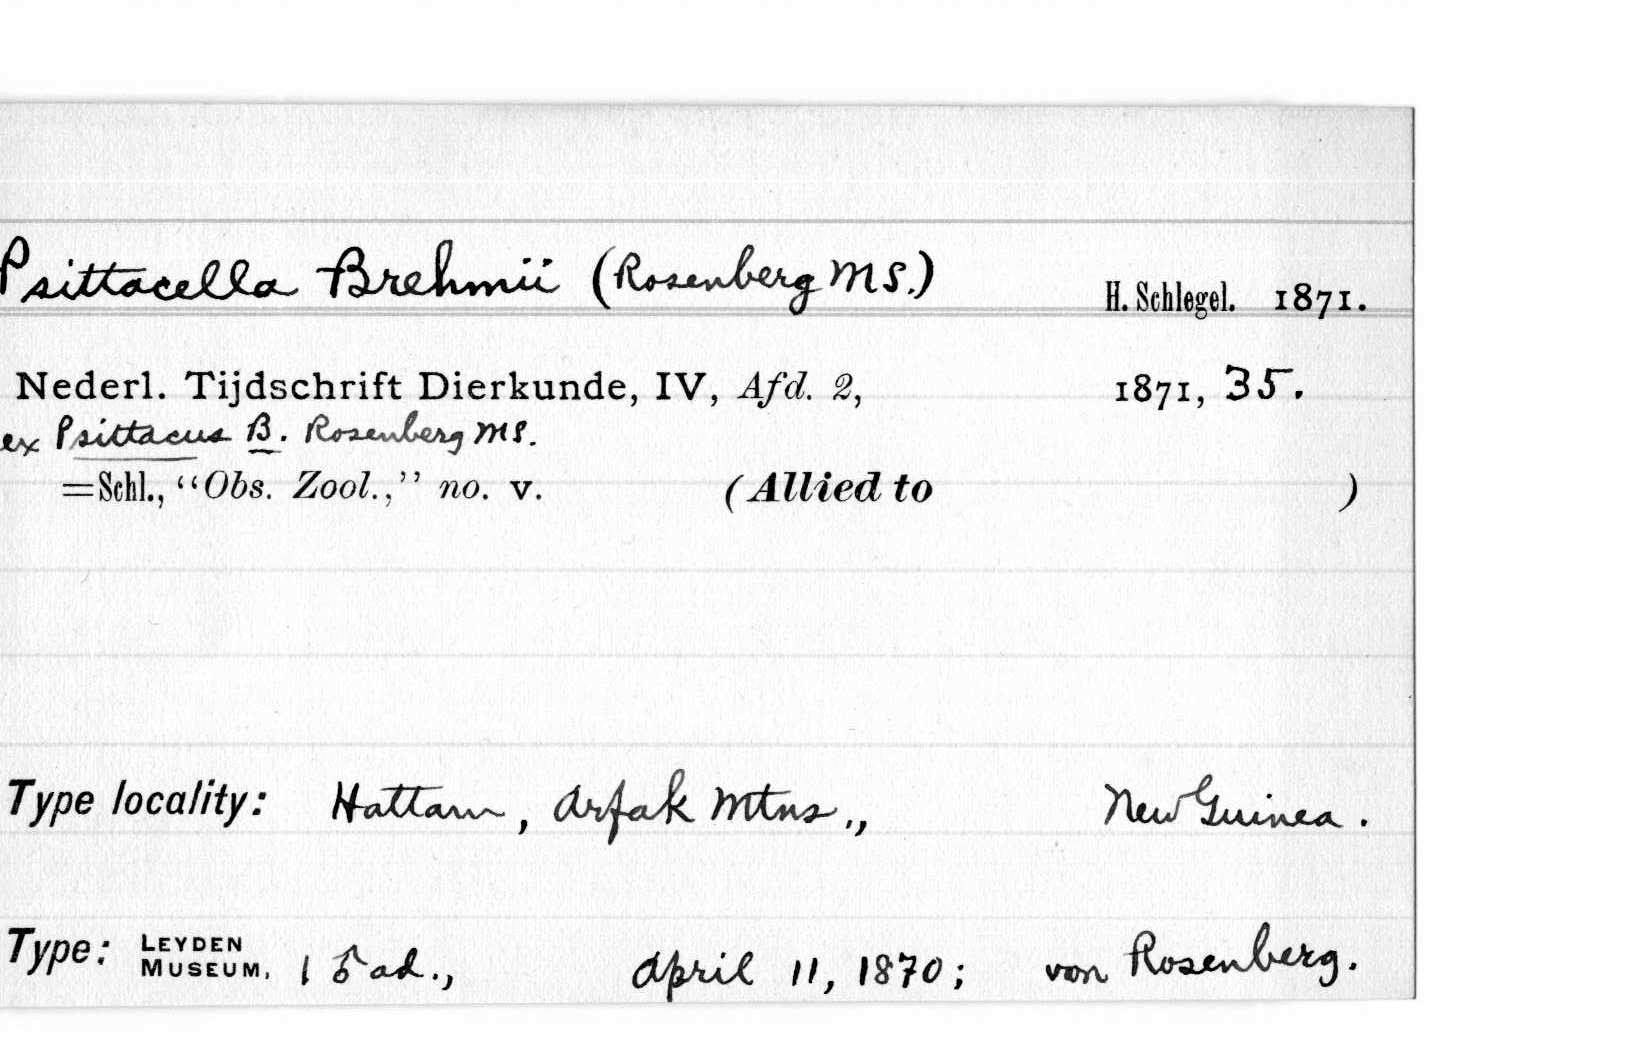 Psittacella Brehmii (Rosenberg MS.) H. Schlegel. 1871.
Nederl. Tijdschrift Dierkunde, IV, Afd. 2, 1871, 35.
ex Psittacus B. Rosenberg MS.
=Schl., “Obs. Zool.,” no. v. (Allied to )
Type locality: Hattam, Arfak Mtns., New Guinea.
Type: LEYDEN MUSEUM, 1 ♂ ad., April 11, 1870; von Rosenberg.